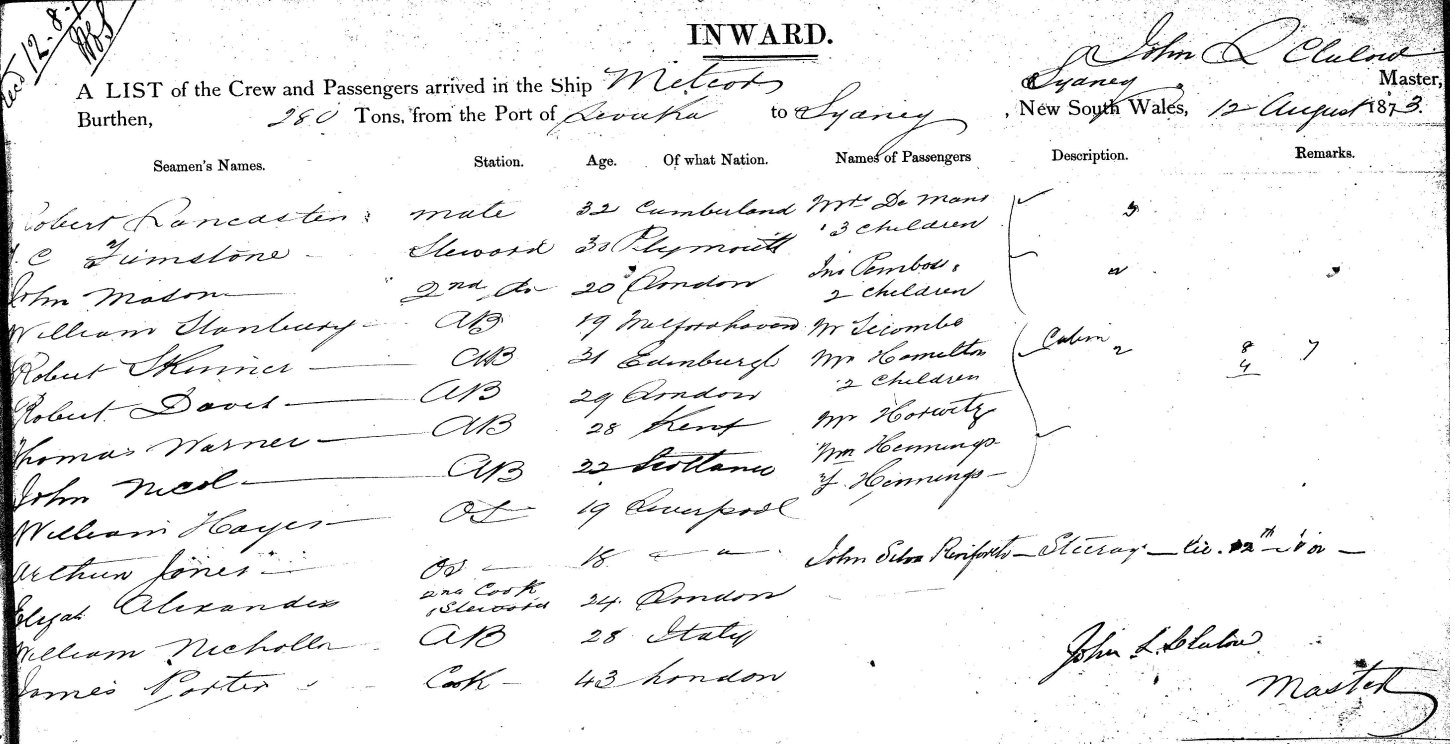 12.8.7
INWARD.
John L Clulow
A LIST of the Crew and Passengers arrived in the Ship Meteor Sydney Master,
Burthen, 280 Tons, from the Port of Levuka to Sydney, New South Wales, 12 August 1873.
Seamen's Names. Station. Age. Of what Nation. Names of Passengers Description. Remarks.
Robert Lancaster mate 32 Cumberland Mrs De Mans
3 children
C Fimstone Steward 30 Plymouth
John Mason 2nd do 20 London Jno Pembos
2 children
William Stanbury AB 19 Milfordhaven Mr Secombe
Robert Skinner AB 31 Edinburgh Mr Hamelton Cabin 2 8 7
4
2 children
Robert Daves AB 29 London
Thomas Warner AB 28 Kent Mr Horwitz
Wm Hennings
John Nicol AB 22 Scotland Y Hennings
William Hayes OS 19 Liverpool
Arthur Jones OS 18 " " John Renforth Steerage
Elijah Alexander 2nd Cook & Steward 24 London
William Nicholls AB 28 Italy John L. Clulow
James Porter Cook 43 London Master